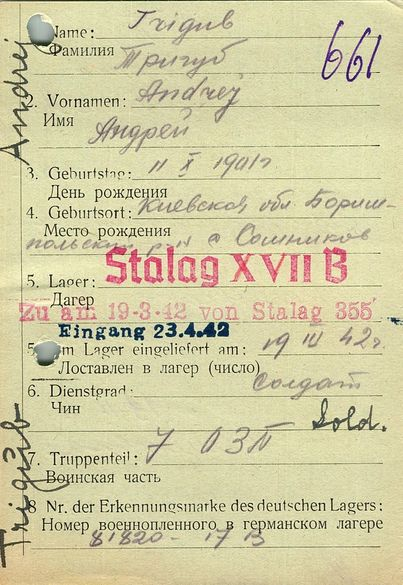 Name: Trigub
661
Фамилия
Тригуб
2. Vornamen: Andrej
Имя
Андрей
3. Geburtstag: 11 X 1901 г.
День рождения
4. Geburtsort: Киевская обл. Бориш-
Место рождения
польский р-н с Сошников
Stalag XVII B
5. Lager:
Лагер
Zu am 19-3-42 von Stalag 355
Eingang 23.4.42
19 III 42 г.
5. Im Lager eingeliefert am:
Доставлен в лагер (число)
6. Dienstgrad: Солдат
Чин
Sold.
7. Truppenteil: 7 ОЗП
Воинская часть
8 Nr. der Erkennungsmarke des deutschen Lagers:
Номер военнопленного в германском лагере
81820 - 17 B
Andrej
Trigub